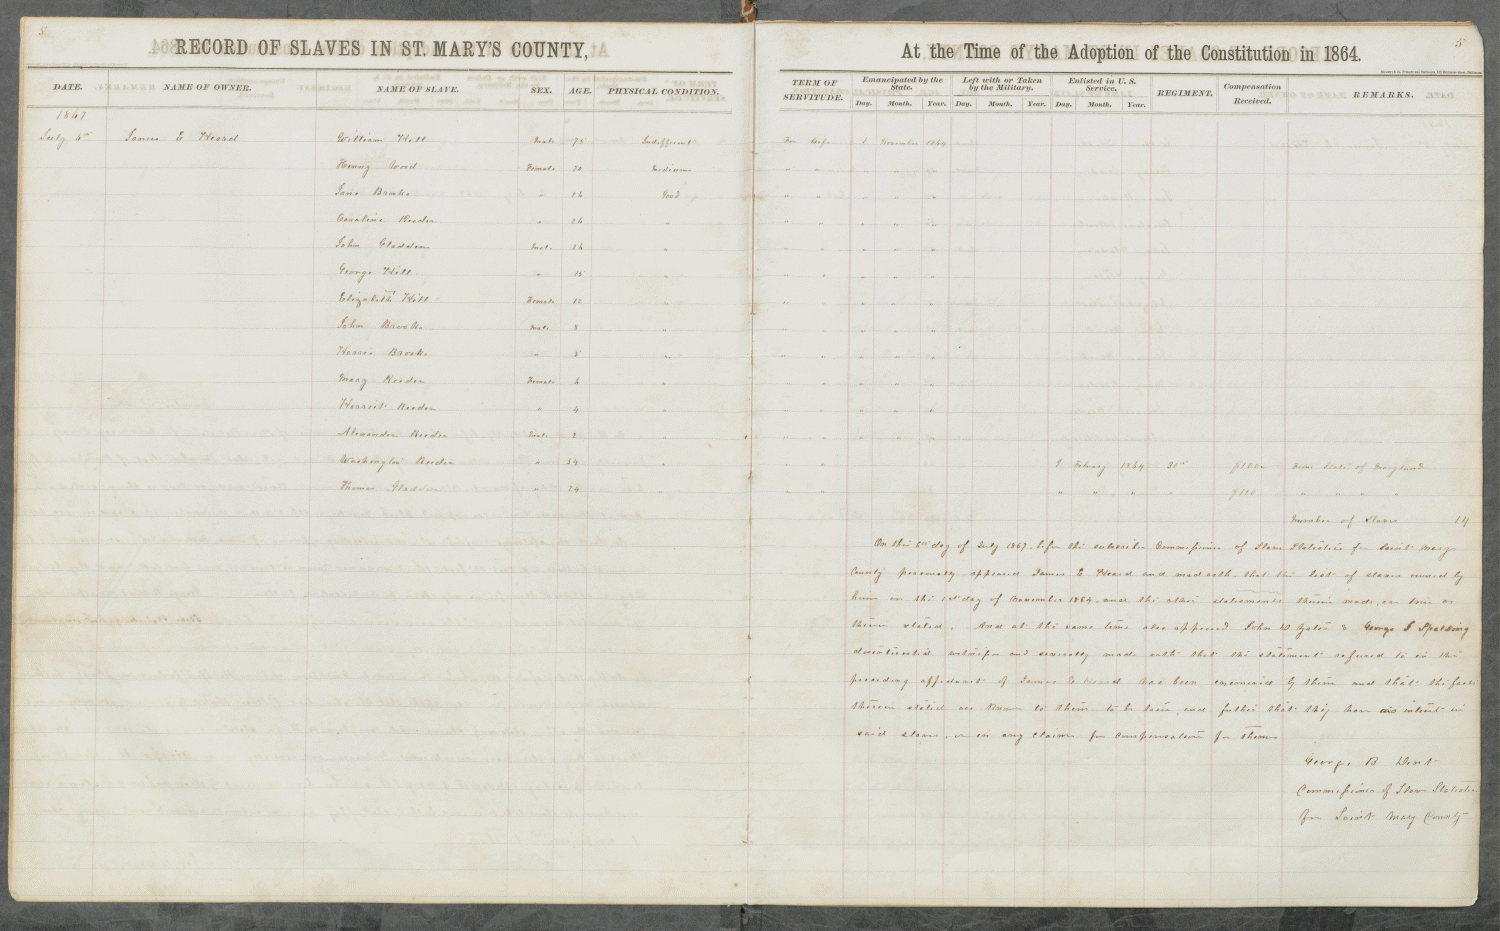 RECORD OF SLAVES IN ST. MARY'S COUNTY,
DATE. NAME OF OWNER. NAME OF SLAVE. SEX. AGE. PHYSICAL CONDITION.
1867
July 6th James E Heard William Hill Male 75 Indifferent
Wood Female 70 Medium
Jane Brooks " 26 Good
Caroline Reeder " 26 "
John Gladden Male 26 "
George Hill " 15 "
Elizabeth Hill Female 12 "
John Brooks Male 8 "
Brooks " 5 "
Mary Reeder Female 6 "
Harriet Reeder " 4 "
Alexander Reeder Male 2 "
Washington Reeder " 34 "
Thomas Gladden " 24 "
At the Time of the Adoption of the Constitution in 1864.
5
TERM OF SERVITUDE. Emancipated by the State. Left with or Taken by the Military. Enlisted in U. S. Service. REGIMENT. Compensation Received. REMARKS.
Day. Month. Year. Day. Month. Year. Day. Month. Year.
For Life 1 November 1864
" " " " "
" " " " "
" " " " "
" " " " "
" " " " "
" " " " "
" " " " "
" " " " "
" " " " "
" " " " "
" " " " "
" " February 1864 $100 from State of Maryland
" " " " " " $100 " " " "
Number of Slaves 14
On this 6th day of July 1867, before the subscriber Commissioner of Slave Statistics for Saint Marys
County personally appeared James E Heard and made oath that the list of slaves owned by
him on the 1st day of November 1864, and the other statements therein made, are true as
therein stated. And at the same time also appeared John D Yates & George S Spalding
disinterested witnesses and severally made oath that the statement referred to in the
preceding affidavit of James E Heard has been examined by them and that the facts
therein stated are known to them to be true, and further that they have no interest in
said slaves, or in any claims for compensation for them
George B Dent
Commissioner of Slave Statistics
for Saint Mary County